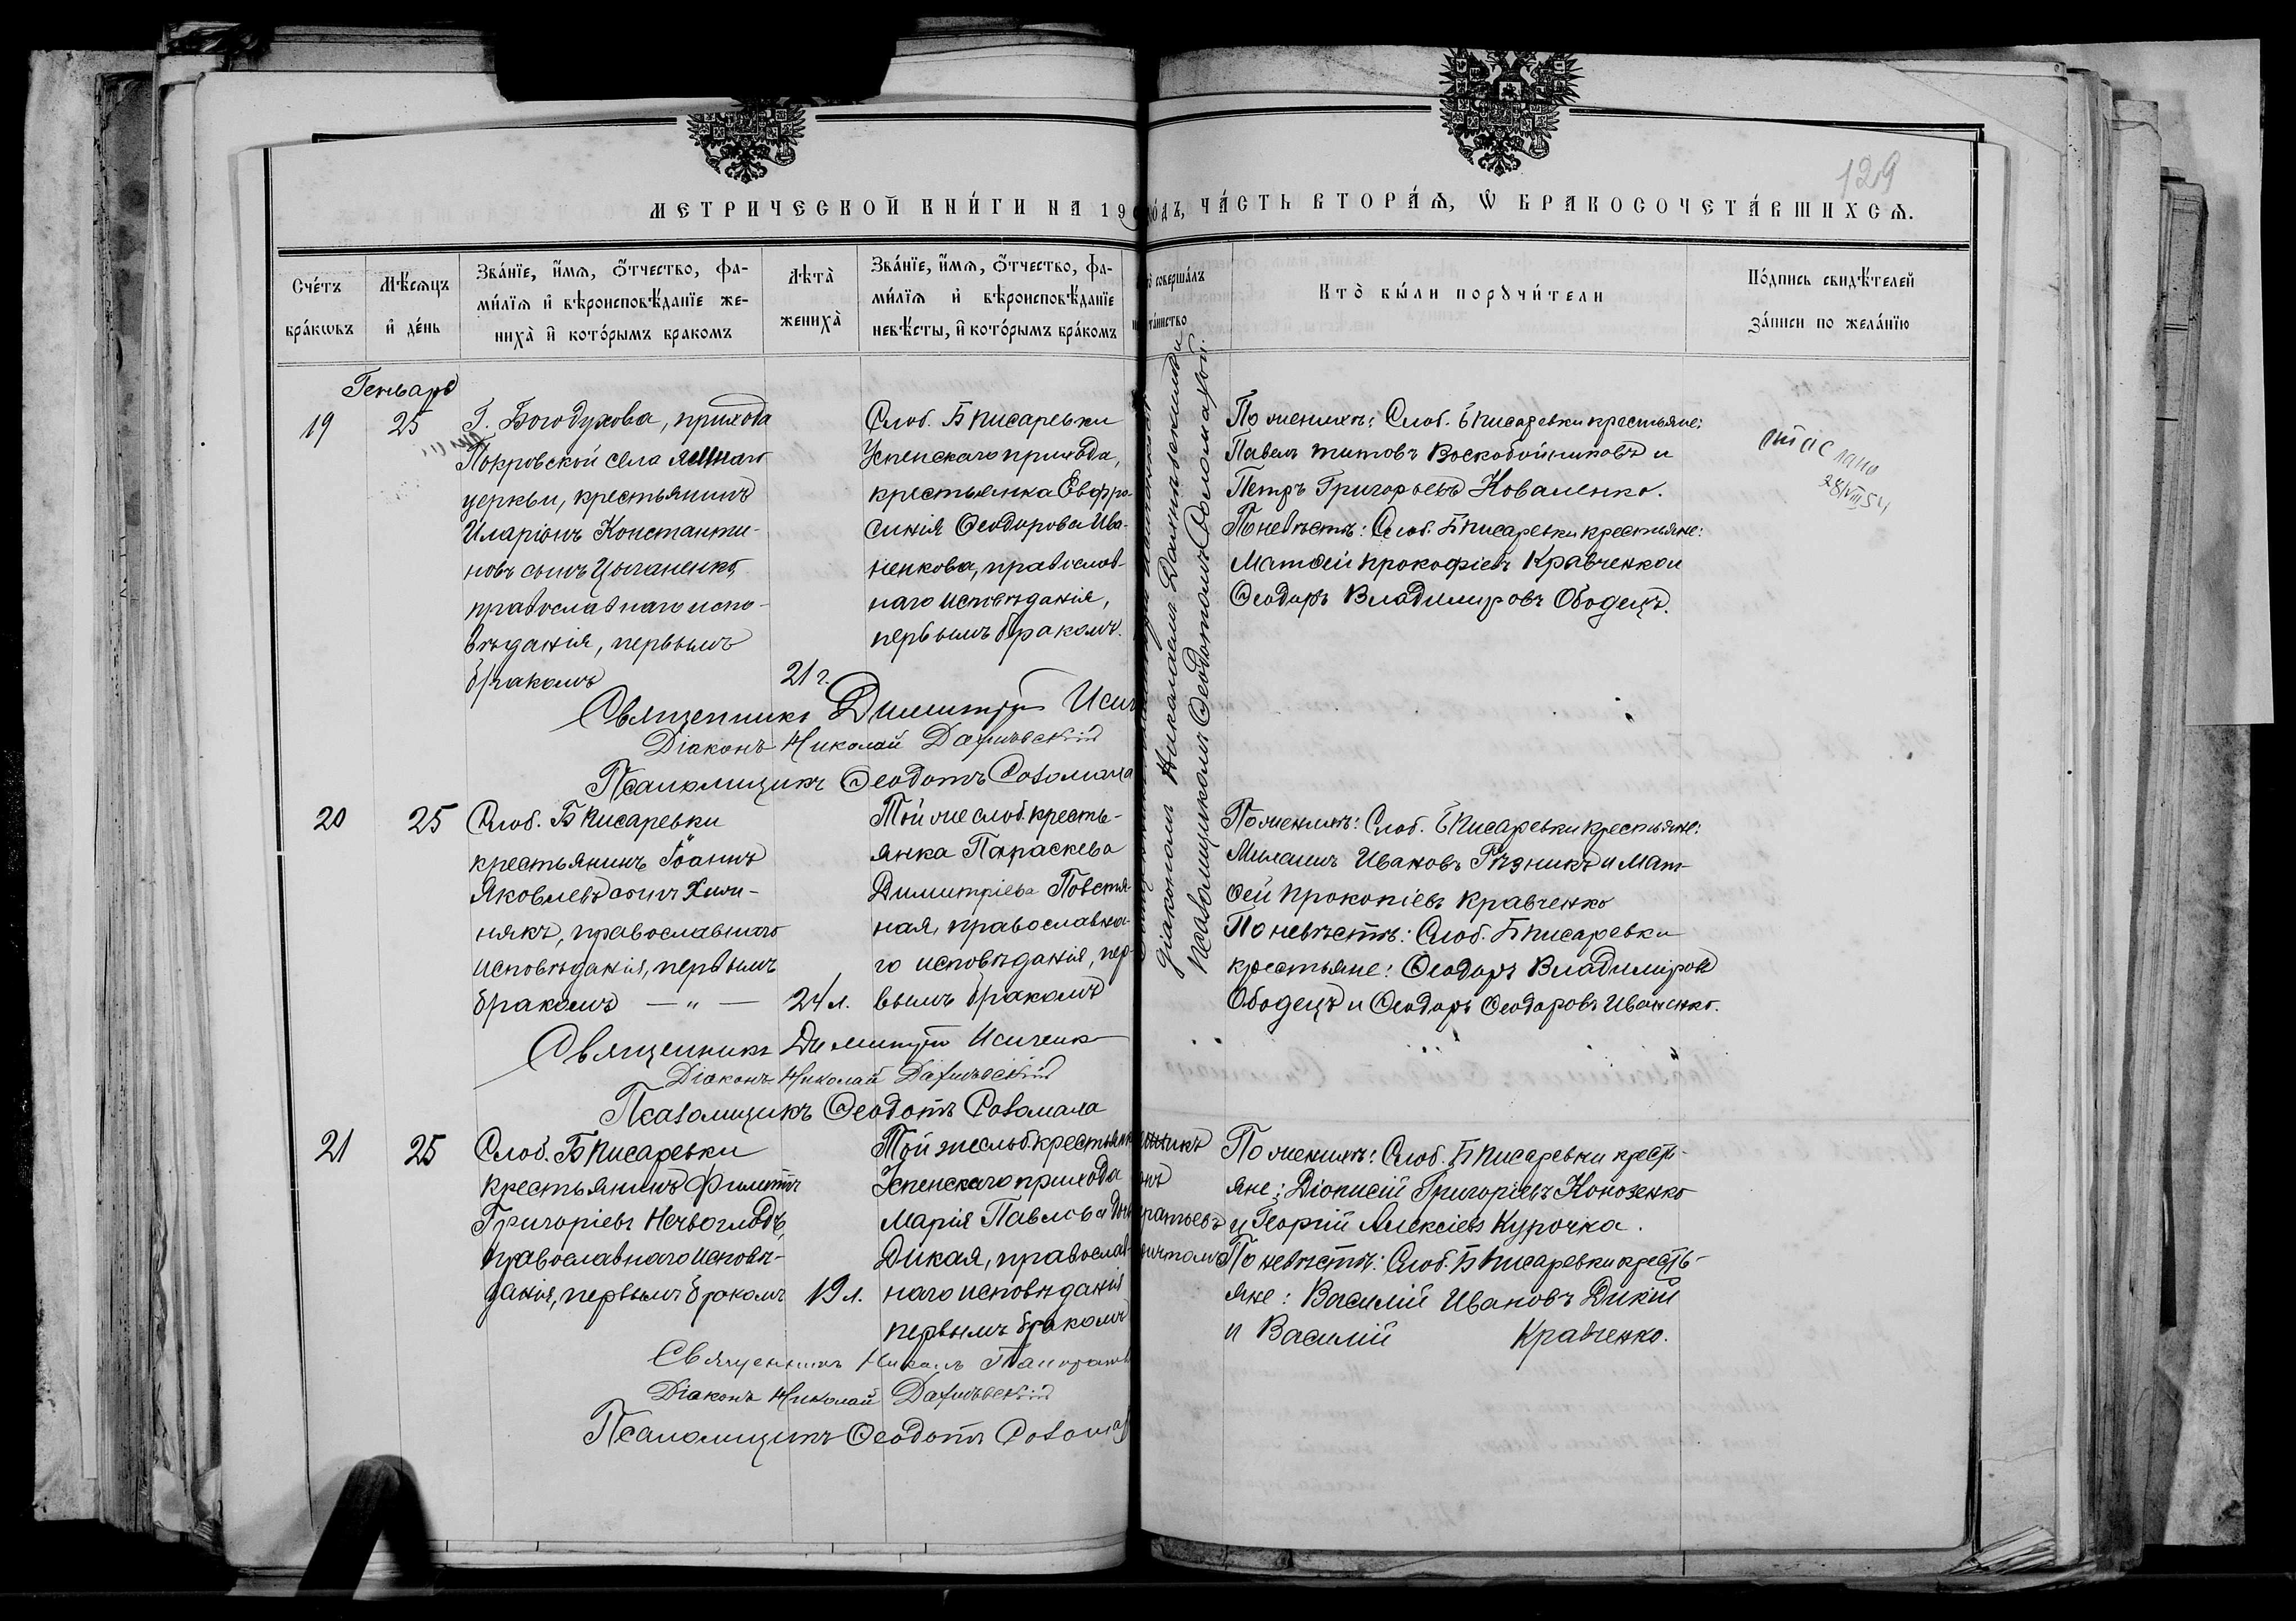 129
МЕТРИЧЕСКОЙ КНИ́ГИ НА 19 го́дъ, ЧА́СТЬ ВТОРА́Ѧ, Ѡ҆ БРАКОСОЧЕТА́ВШИХСѦ.
Сче́тъ бра́кѡвъ
Мѣ́сѧцъ и҆ де́нь
Зва́нїе, и҆́мѧ, ѻ҆́тчество, фа-
ми́лїѧ и҆ вѣроисповѣ́данїе же-
ниха̀ и҆ кото́рымъ бракомъ
Лѣта̀ жениха̀
Зва́нїе, и҆́мѧ, ѻ҆́тчество, фа-
ми́лїѧ и҆ вѣроисповѣ́данїе
невѣ́сты, и҆ кото́рымъ бра́комъ
соверша́лъ
та́инство
Кто̀ бы́ли порꙋчи́тели
По́дпись свидѣ́телей
за́писи по жела́нїю
Генварь
19
25
Г. Богодухова, прихода
Покровской села
церкви, крестьянинъ
Иларіонъ Константи-
новъ сынъ Цыганенко,
православнаго испо-
вѣданія, первымъ
бракомъ
21 г.
Слоб. Б Писаревки
Успенскаго прихода,
крестьянка Евфро-
синія Ѳеодорова Ива-
ненкова, православ-
наго исповѣданія,
первымъ бракомъ.
діакономъ Николаемъ
псаломщикомъ Ѳеодотомъ Соломахой.
По женихѣ: Слоб. Б Писаревки крестьяне:
Павелъ Титовъ Воскобойниковъ и
Петръ Григорьевъ Коваленко.
По невѣстѣ: Слоб. Б Писаревки крестьяне:
Матѳей Прокофіевъ Кравченко и
Ѳеодоръ Владиміровъ Ободецъ.
28/VIII 54
Священникъ Димитрій
Діаконъ Николай
Псаломщикъ Ѳеодотъ Соломаха
20
25
Слоб. Б Писаревки
крестьянинъ Іоаннъ
Яковлевъ сынъ Хиж-
някъ, православнаго
исповѣданія, первымъ
бракомъ — „ —
24 л.
Той же слоб. кресть-
янка Параскева
Димитріева Повстя-
ная, православна-
го исповѣданія, пер-
вымъ бракомъ
По женихѣ: Слоб. Б Писаревки крестьяне:
Ивановъ Рѣзникъ и Мат-
ѳей Прокопіевъ Кравченко
По невѣстѣ: Слоб. Б Писаревки
крестьяне: Ѳеодоръ Владиміровъ
Ободецъ и Ѳеодоръ Ѳеодоровъ Иваненко.
Священникъ Димитрій Исиченко
Діаконъ Николай
Псаломщикъ Ѳеодотъ Соломаха
21
25
Слоб. Б Писаревки
крестьянинъ Филиппъ
Григоріевъ
православнаго исповѣ-
данія, первымъ бракомъ
19 л.
Той же слоб. крестьянк
Успенскаго прихода
Марія Павлова
Дикая, православ-
наго исповѣданія
первымъ бракомъ
По женихѣ: Слоб. Б Писаревки кресть-
яне: Діонисій Григоріевъ Кононенко
и Георгій Алексіевъ Курочка.
По невѣстѣ: Слоб. Б Писаревки кресть-
яне: Василій Ивановъ Дикій
и Василій Кравченко.
Священникъ
Діаконъ Николай
Псаломщикъ Ѳеодотъ Соломах